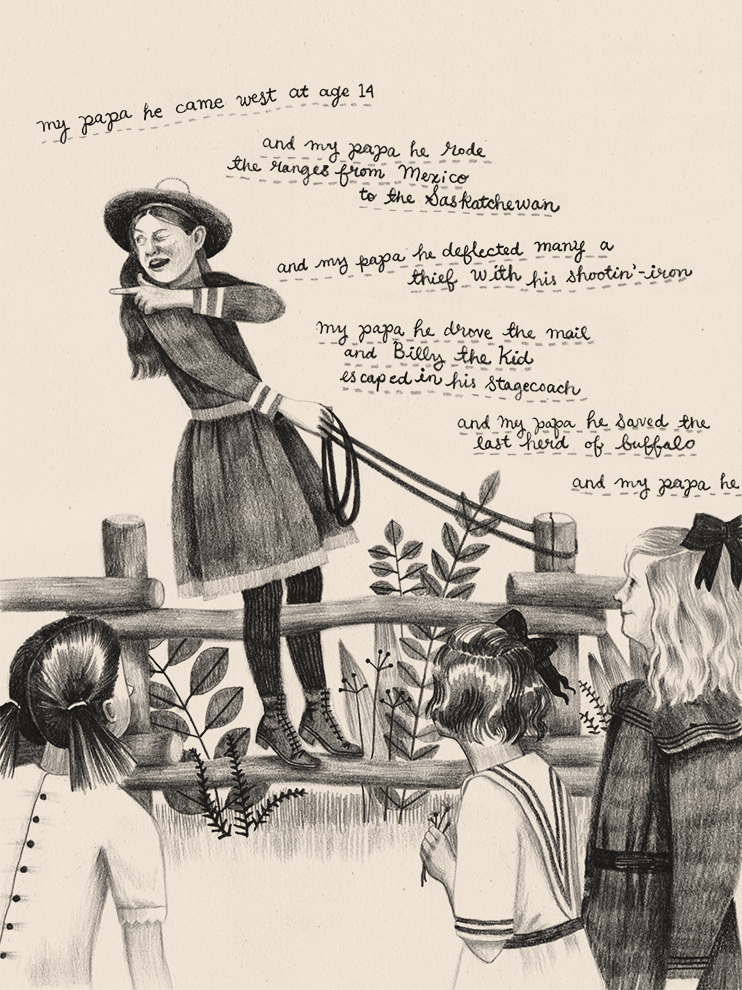 my papa he came west at age 14
and my papa he rode
the ranges from Mexico
to the Saskatchewan
and my papa he deflected many a
thief with his shootin'-iron
my papa he drove the mail
and Billy the Kid
escaped in his stagecoach
and my papa he saved the
last herd of buffalo
and my papa he